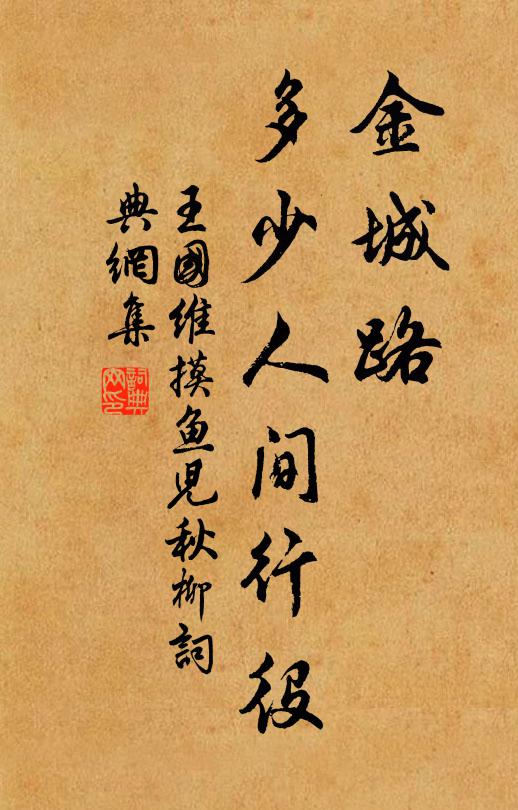 金城路
多少人間行役
王國維摸魚兒秋柳詞
典網集
詞典網印